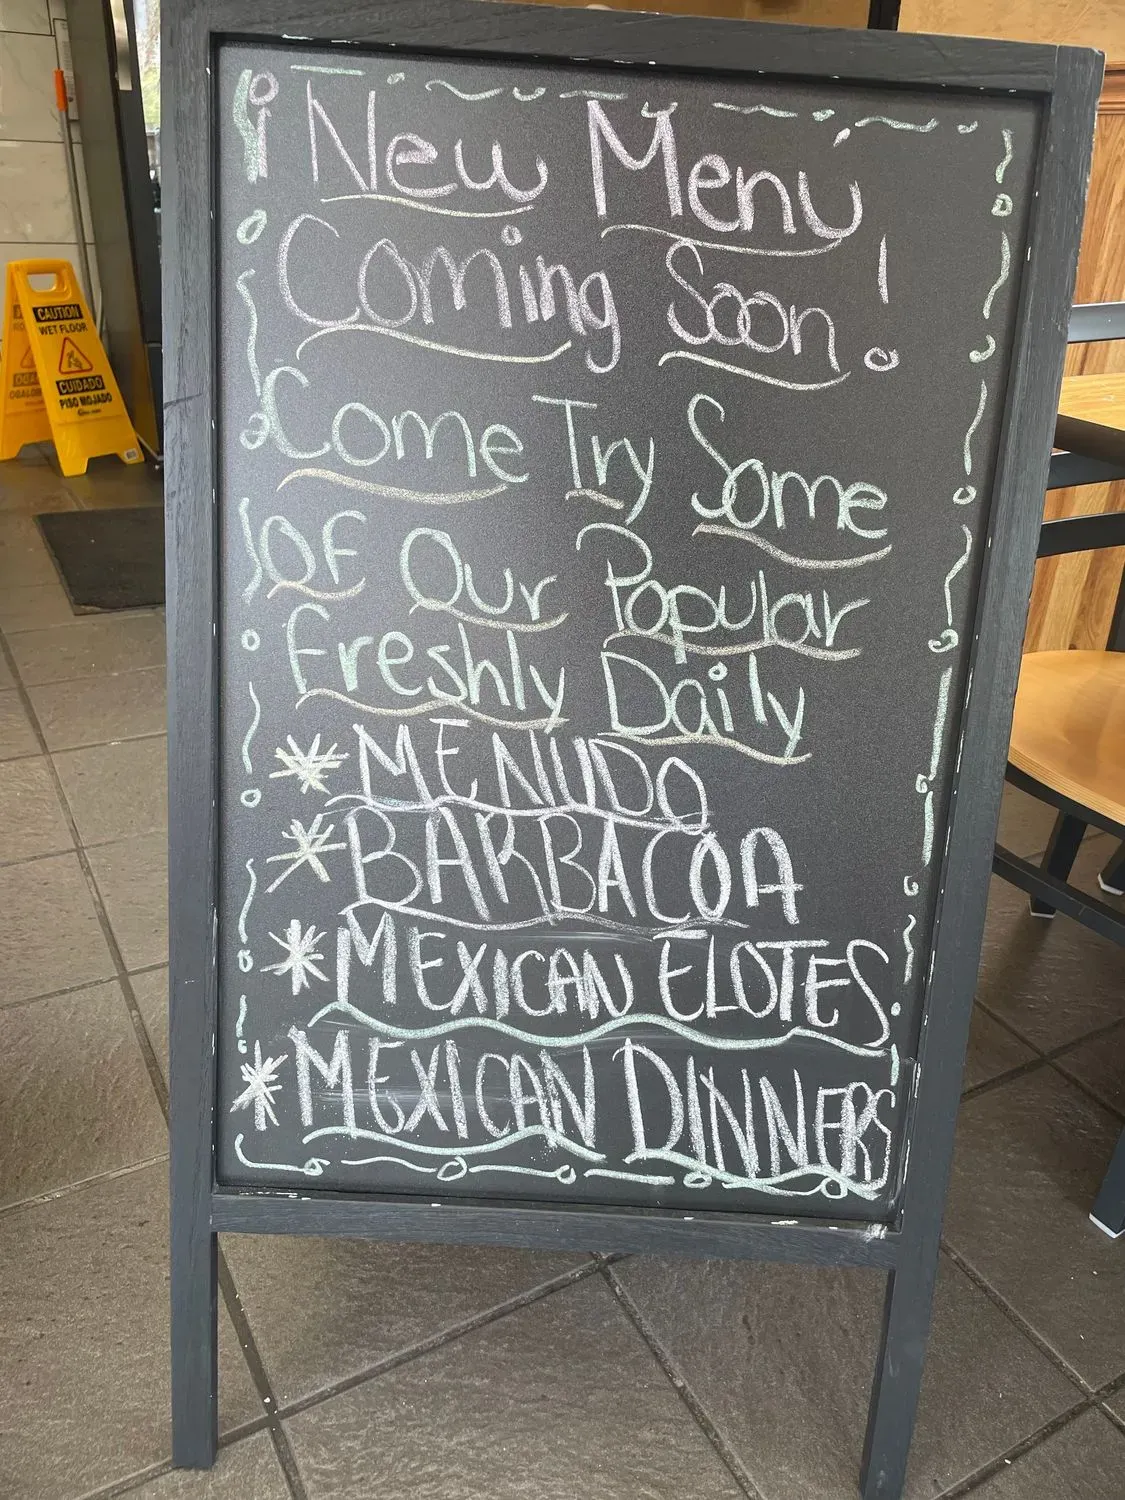 ¡New Menú
Coming Soon!
Come Try Some
Of Our Popular
Freshly Daily
* MENUDO
* BARBACOA
* MEXICAN ELOTES
* MEXICAN DINNERS
CAUTION
WET FLOOR
CUIDADO
PISO MOJADO